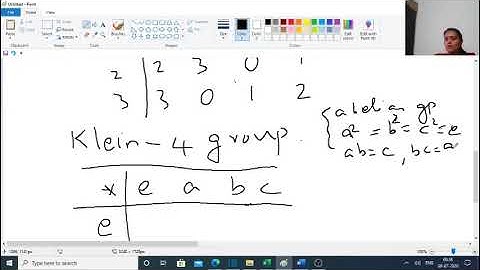 Untitled - Paint
File Home View
2 | 2 3 0 1
3 | 3 0 1 2
Klein-4 group
abelian gp
a² = b² = c² = e
ab=c, bc=a
* | e a b c
e |
Type here to search
100%
ENG